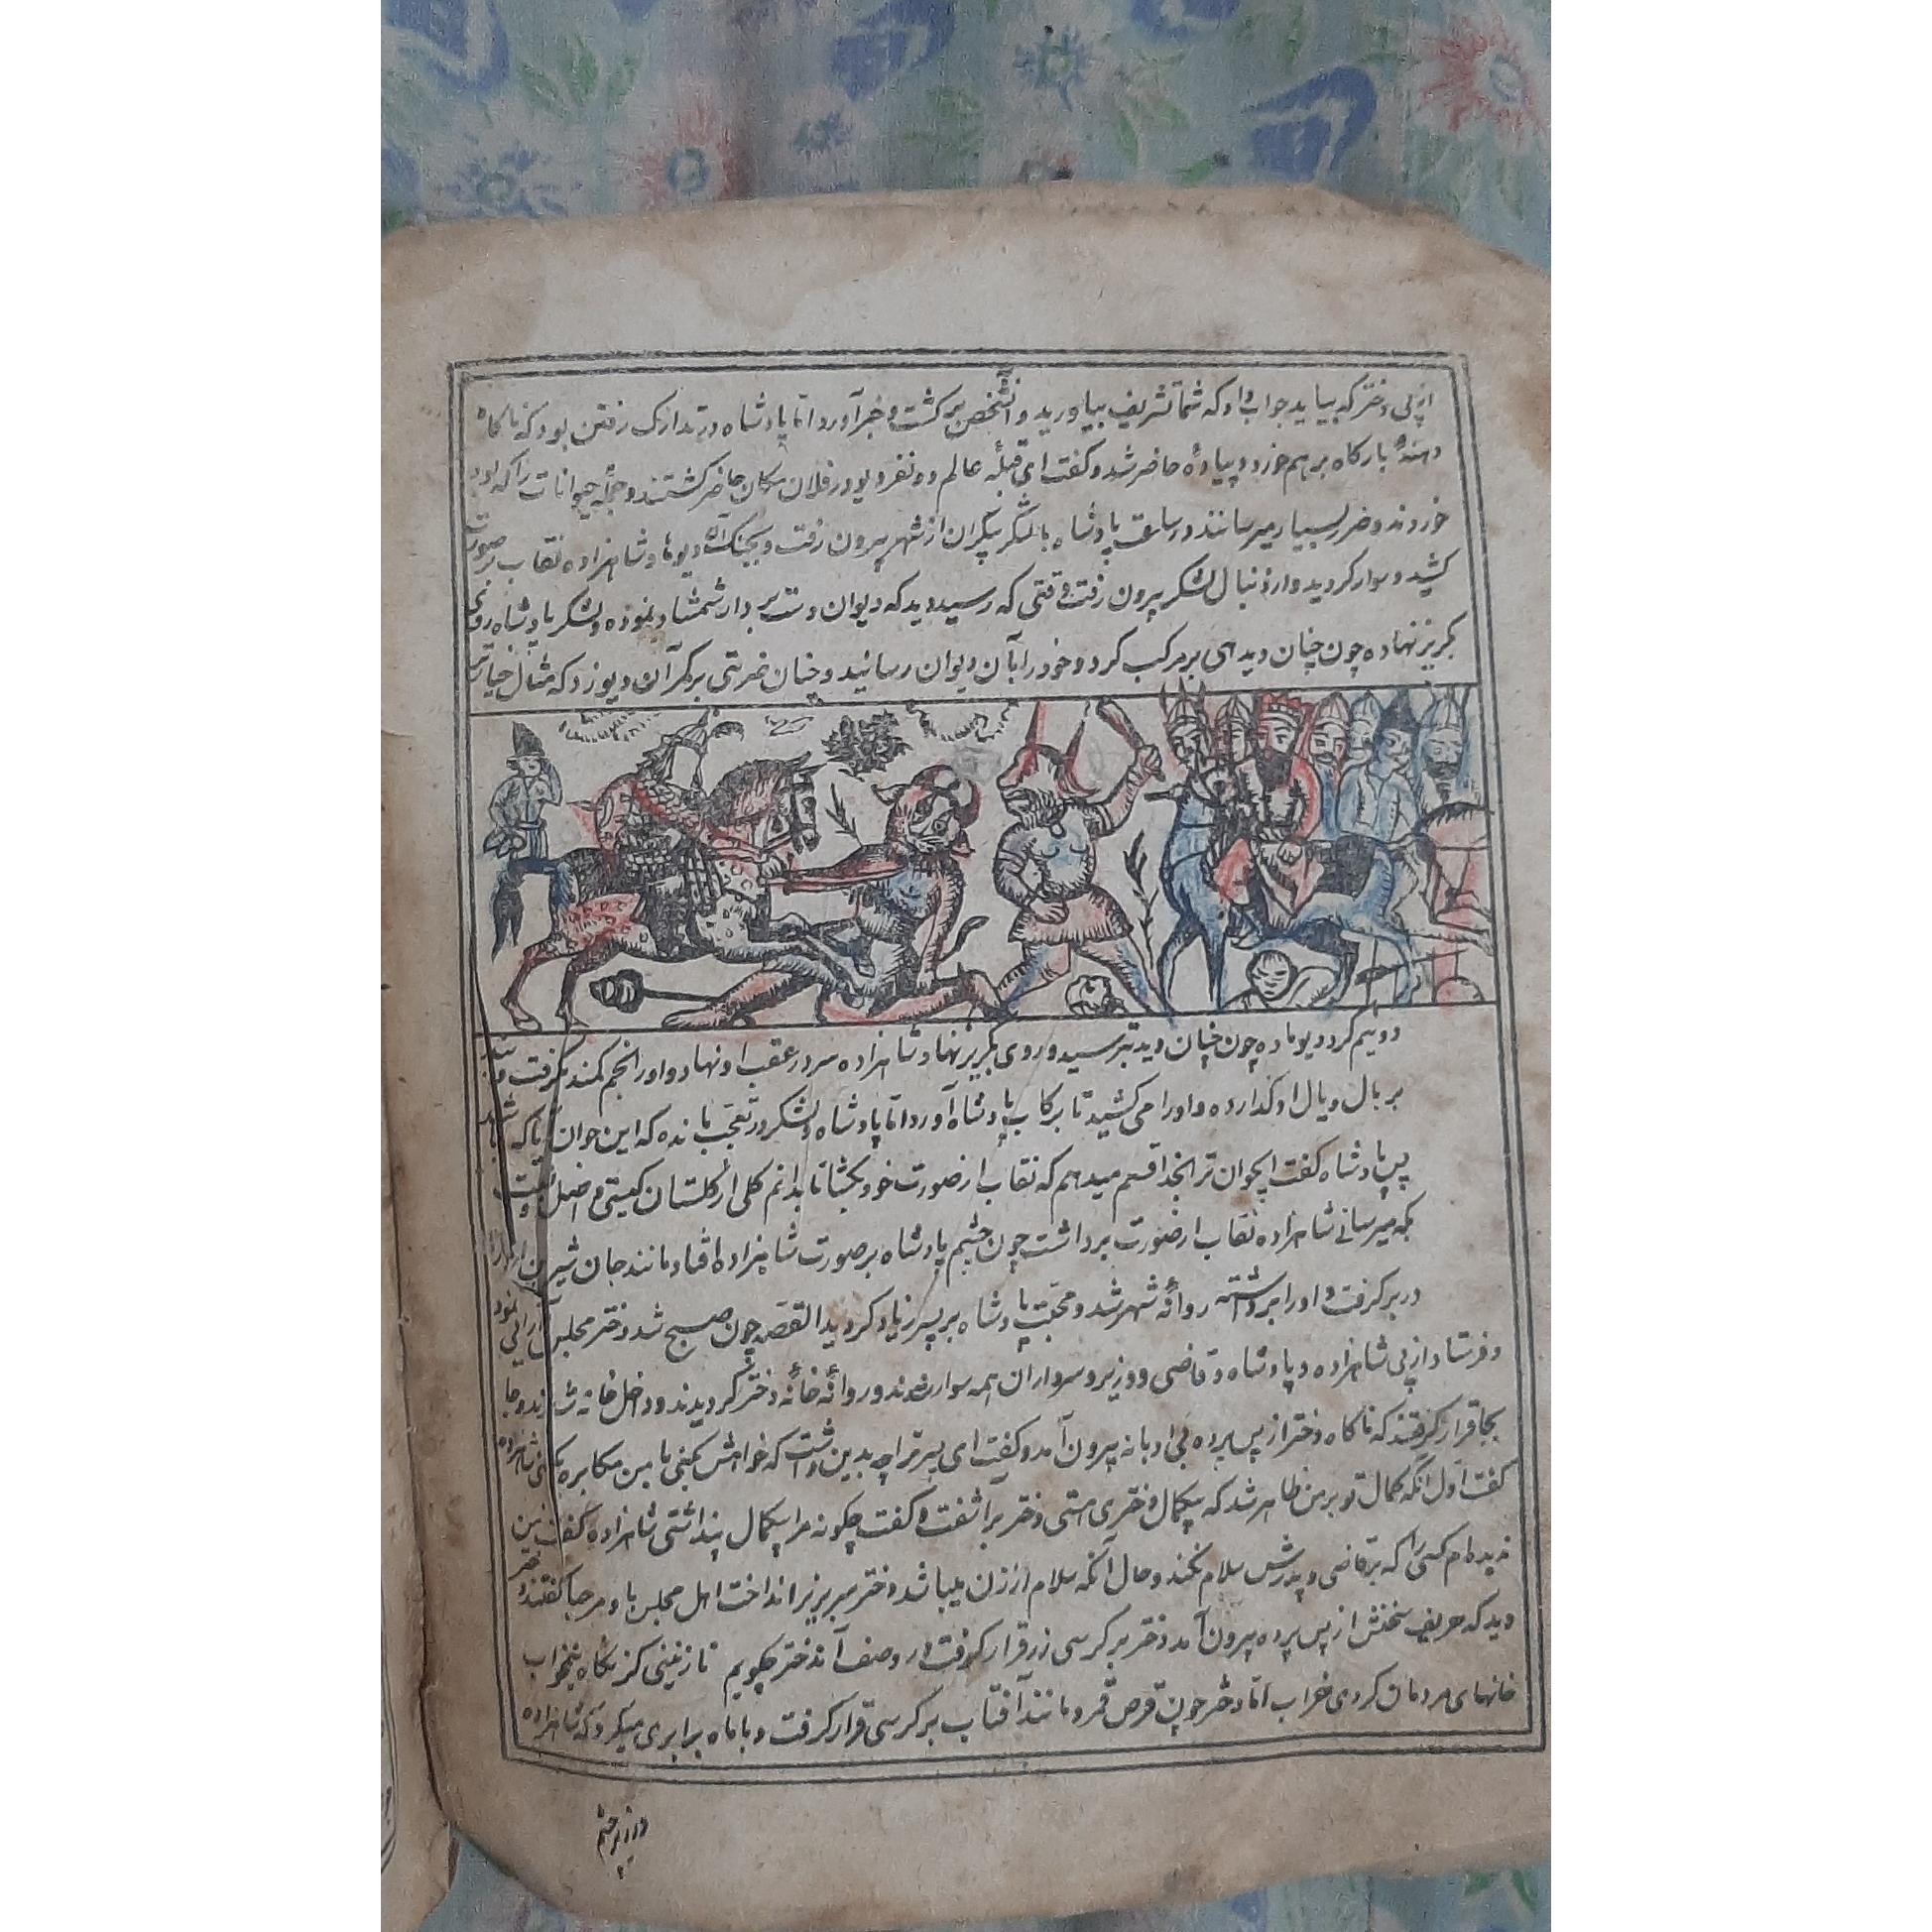 از پی دختر که بیاید جواب داد که شما تشریف بیاورید و آنشخص برکشت و خبر آورد اما پادشاه در تدارک رفتن بود که ناکاه
بارکاه برهم خورد و پیادهٔ حاضر شد و کفت ای قبلهٔ عالم دو نفر دیو در فلان مکان حاضر کشتند و جمله حیوانات را که بود
خوردند و ضرر بسیار میرسانند در ساعت پادشاه با لشکر بیکران از شهر بیرون رفت و بجنک آن دیوها و شاهزاده نقاب بر صورت
کشید و سوار کردید و از دنبال لشکر بیرون رفت وقتی که رسید دید که دیوان دست بر دار شمشاد نموده و لشکر پادشاه روی
بکریز نهاده چون چنان دید هی بر مرکب کرد و خود را بآن دیوان رسانید و چنان ضربتی بر کمر آن دیو زد که مثال خیار تر
دو نیم کرد دیو ماده چون چنان دید بترسید و روی بکریز نهاد شاهزاده سر در عقب او نهاد و او را بخم کمند کرفت و
بر بال و یال او کذارده و او را می کشید تا برکاب پادشاه آورد اما پادشاه و لشکر در تعجب مانده که این جوان آیا که باشد
پس پادشاه کفت ایجوان ترا بخدا قسم میدهم که نقاب از صورت خود بکشا تا بدانم کلی از کلستان کیستی و اصل و نسبت
بکه میرسانی شاهزاده نقاب از صورت برداشت چون چشم پادشاه بر صورت شاهزاده افتاد مانند جان شیرین او را
در بر کرفت و او را برداشته روانهٔ شهر شد و محبت پادشاه بر پسر زیاد کردید القصه چون صبح شد دختر مجلس آرائی نمود
و فرستاد از پی شاهزاده و پادشاه و قاضی و وزیر و سرداران همه سوار شدند و روانهٔ خانهٔ دختر کردیدند و داخل خانه شدند و جا
بجا قرار کرفتند که ناکاه دختر از پس پرده بی ادبانه بیرون آمد و کفت ای پسر ترا چه بدین داشت که خواهش کنی با من مکابره کنی شاهزاده
کفت اول انکه کمال تو بر من ظاهر شد که بیکمال دختری هستی دختر برآشفت و کفت چکونه مرا بیکمال پنداشتی شاهزاده کفت من
ندیده ام کسی را که بر قاضی و پدرش سلام نکند و حال آنکه سلام از زن میباشد دختر سر بزیر انداخت اهل مجلس باو مرحبا کفتند دختر
دید که حریف سخنش از پس پرده بیرون آمد دختر بر کرسی زر قرار کرفت در وصف آندختر چکویم نازنینی کز نکاه نیمخواب
خانهای مردمان کردی خراب اما دختر چون قرص قمر و مانند آفتاب بر کرسی قرار کرفت و با ماه برابری میکرد که شاهزاده
در زیر چشم